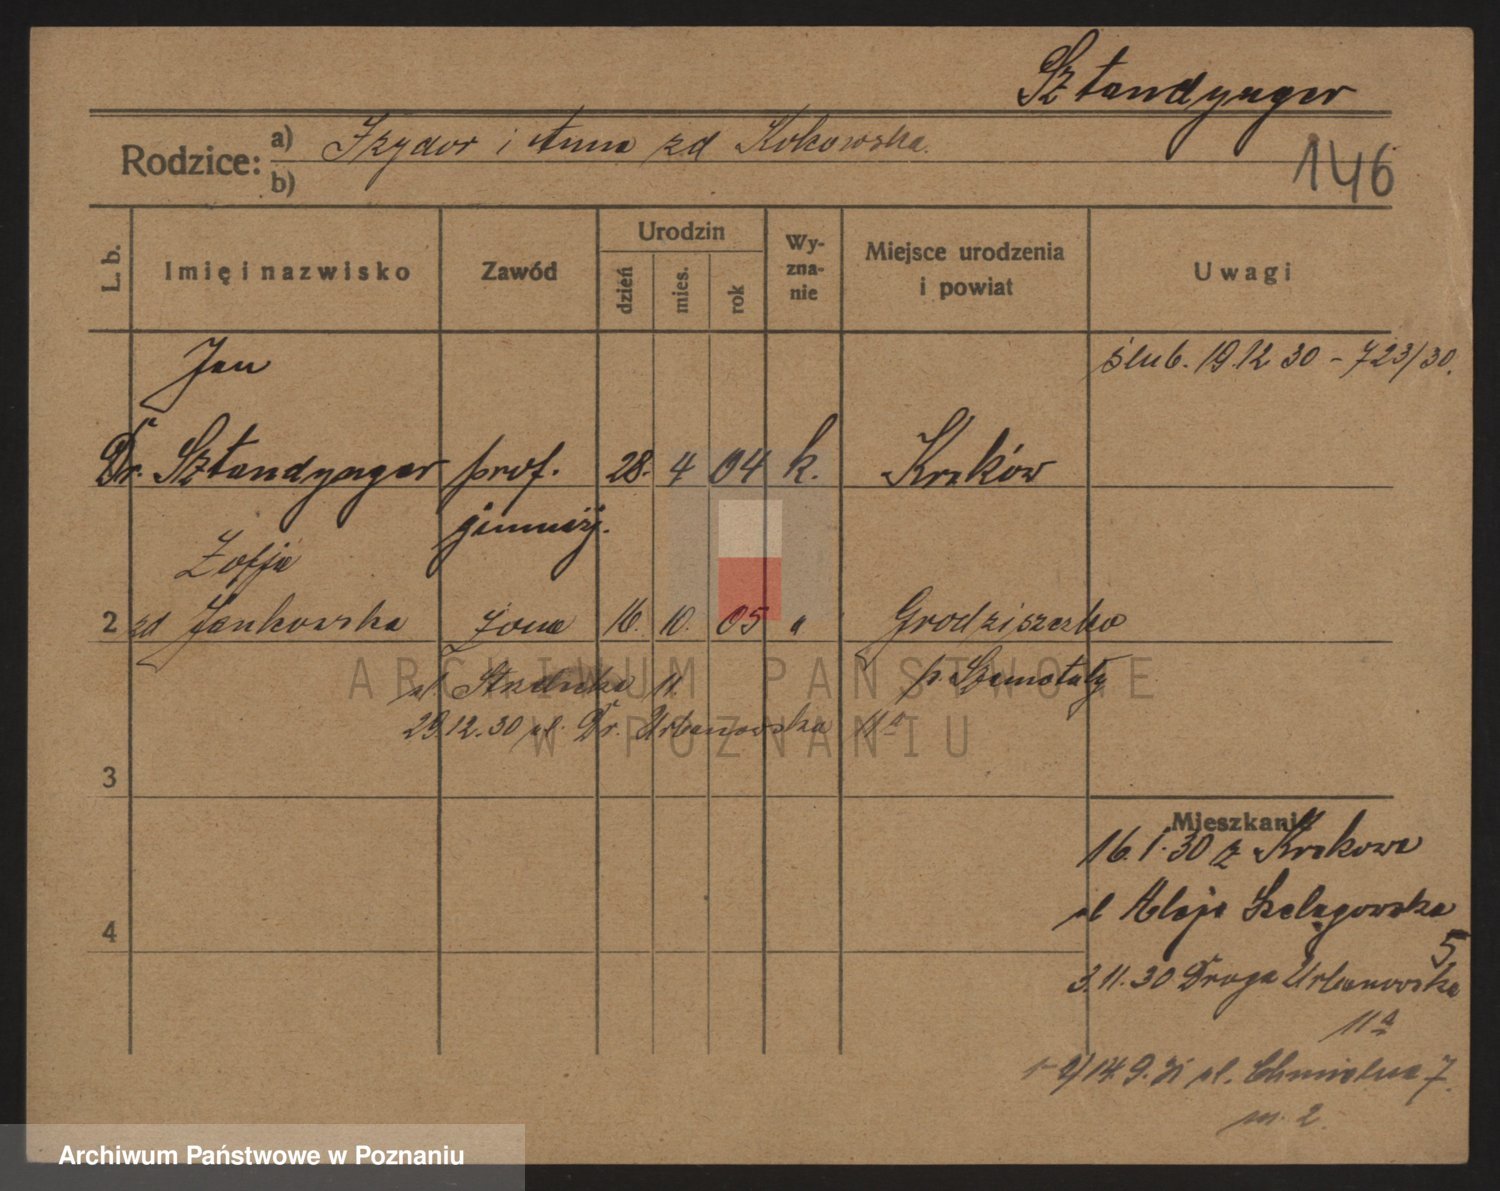 Sztandynger
Rodzice: a) Izydor i Anna zd Kokowska.
b)
146
L. b.
Imię i nazwisko
Zawód
Urodzin
dzień
mies.
rok
Wy-
zna-
nie
Miejsce urodzenia
i powiat
Uwagi
Jan
ślub. 19.12 30 - 723/30.
Dr. Sztandynger prof. 28. 4 04 k. Kraków
gimnazj.
Zofja
2 zd Jankowska żona 16. 10. 05 " Grodziszczko
p. Szamotuły
ul. Strzelecka 11.
29.12.30 ul. Dr. Urbanowska 11a
3
Mieszkanie
16.1.30 z Krakowa
ul Aleja Szelągowska
5
4
3.11.30 Droga Urbanowska
11a
1-2/14.9.31 ul. Chmielna 7.
m. 2.
ARCHIWUM PAŃSTWOWE
W POZNANIU
Archiwum Państwowe w Poznaniu